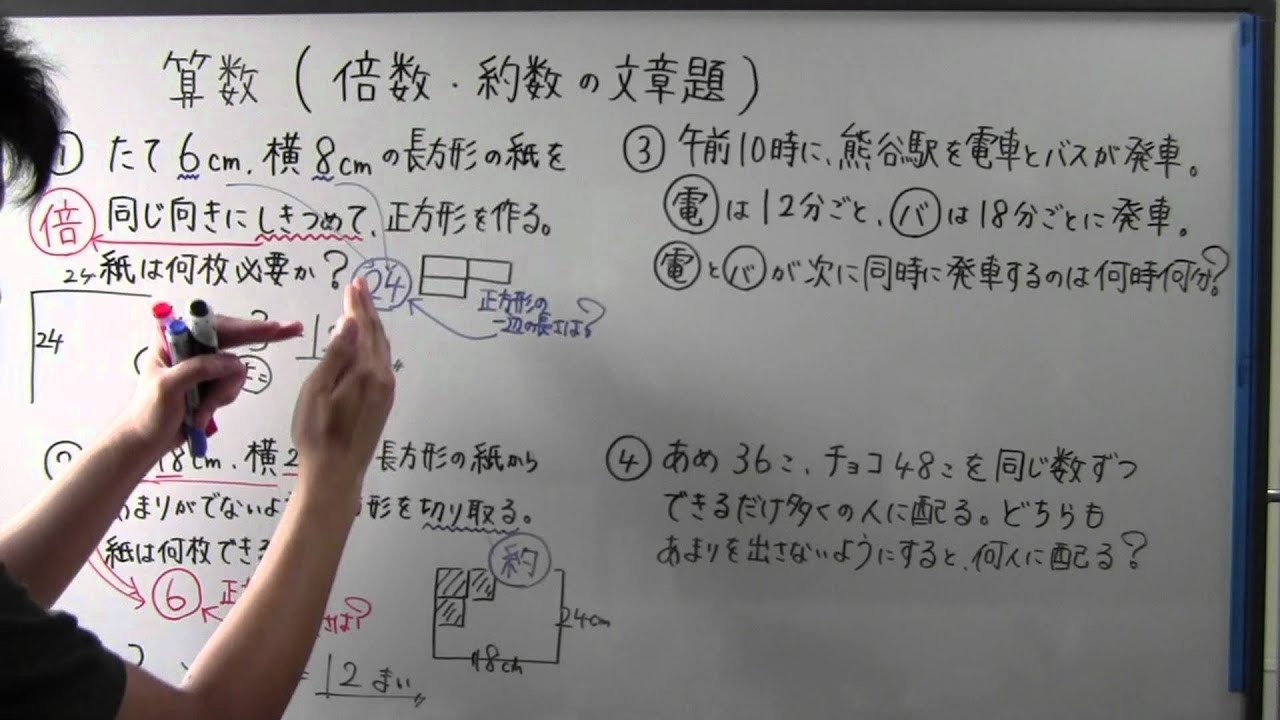 算数(倍数・約数の文章題)
① たて6cm、横8cmの長方形の紙を
倍 同じ向きにしきつめて、正方形を作る。
紙は何枚必要か?
24
24
24
正方形の
一辺の長さは?
3
18cm、横2 長方形の紙から
あまりがでないよう 形を切り取る。
紙は何枚できる
約
6 正
は?
24cm
18cm
= 12まい
③ 午前10時に、熊谷駅を電車とバスが発車。
電は12分ごと、バは18分ごとに発車。
電とバが次に同時に発車するのは何時何分?
④ あめ36こ、チョコ48こを同じ数ずつ
できるだけ多くの人に配る。どちらも
あまりを出さないようにすると、何人に配る?